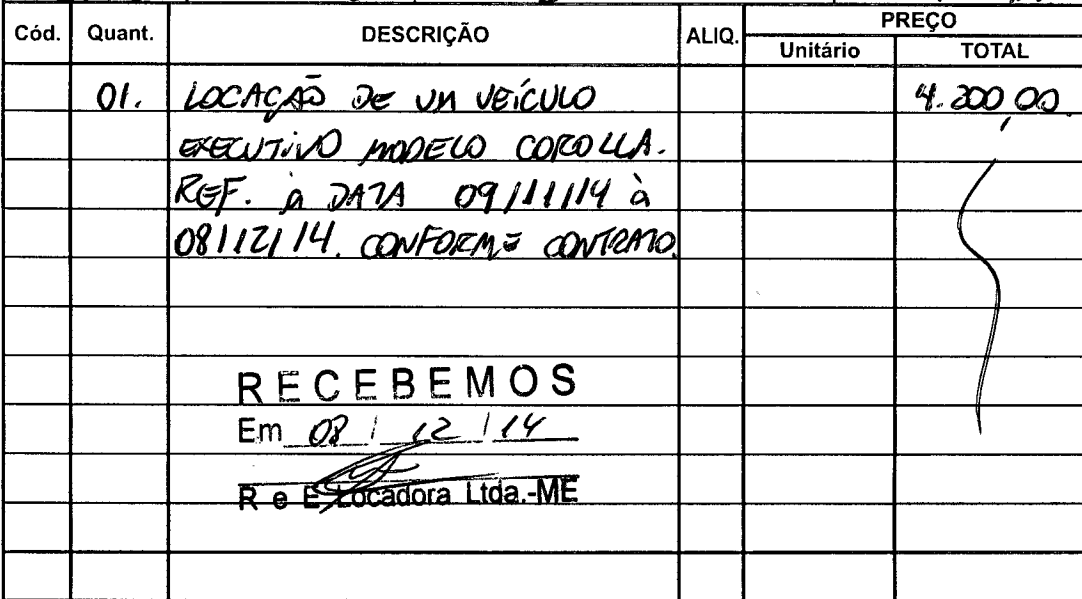 Cód. Quant. DESCRIÇÃO ALIQ. PREÇO
Unitário TOTAL
01. LOCAÇÃO DE UM VEÍCULO 4.200,00
EXECUTIVO MODELO COROLLA.
REF. à DATA 09/11/14 à
08/12/14. CONFORME CONTRATO.
RECEBEMOS
Em 08 / 12 / 14
R e E Locadora Ltda.-ME